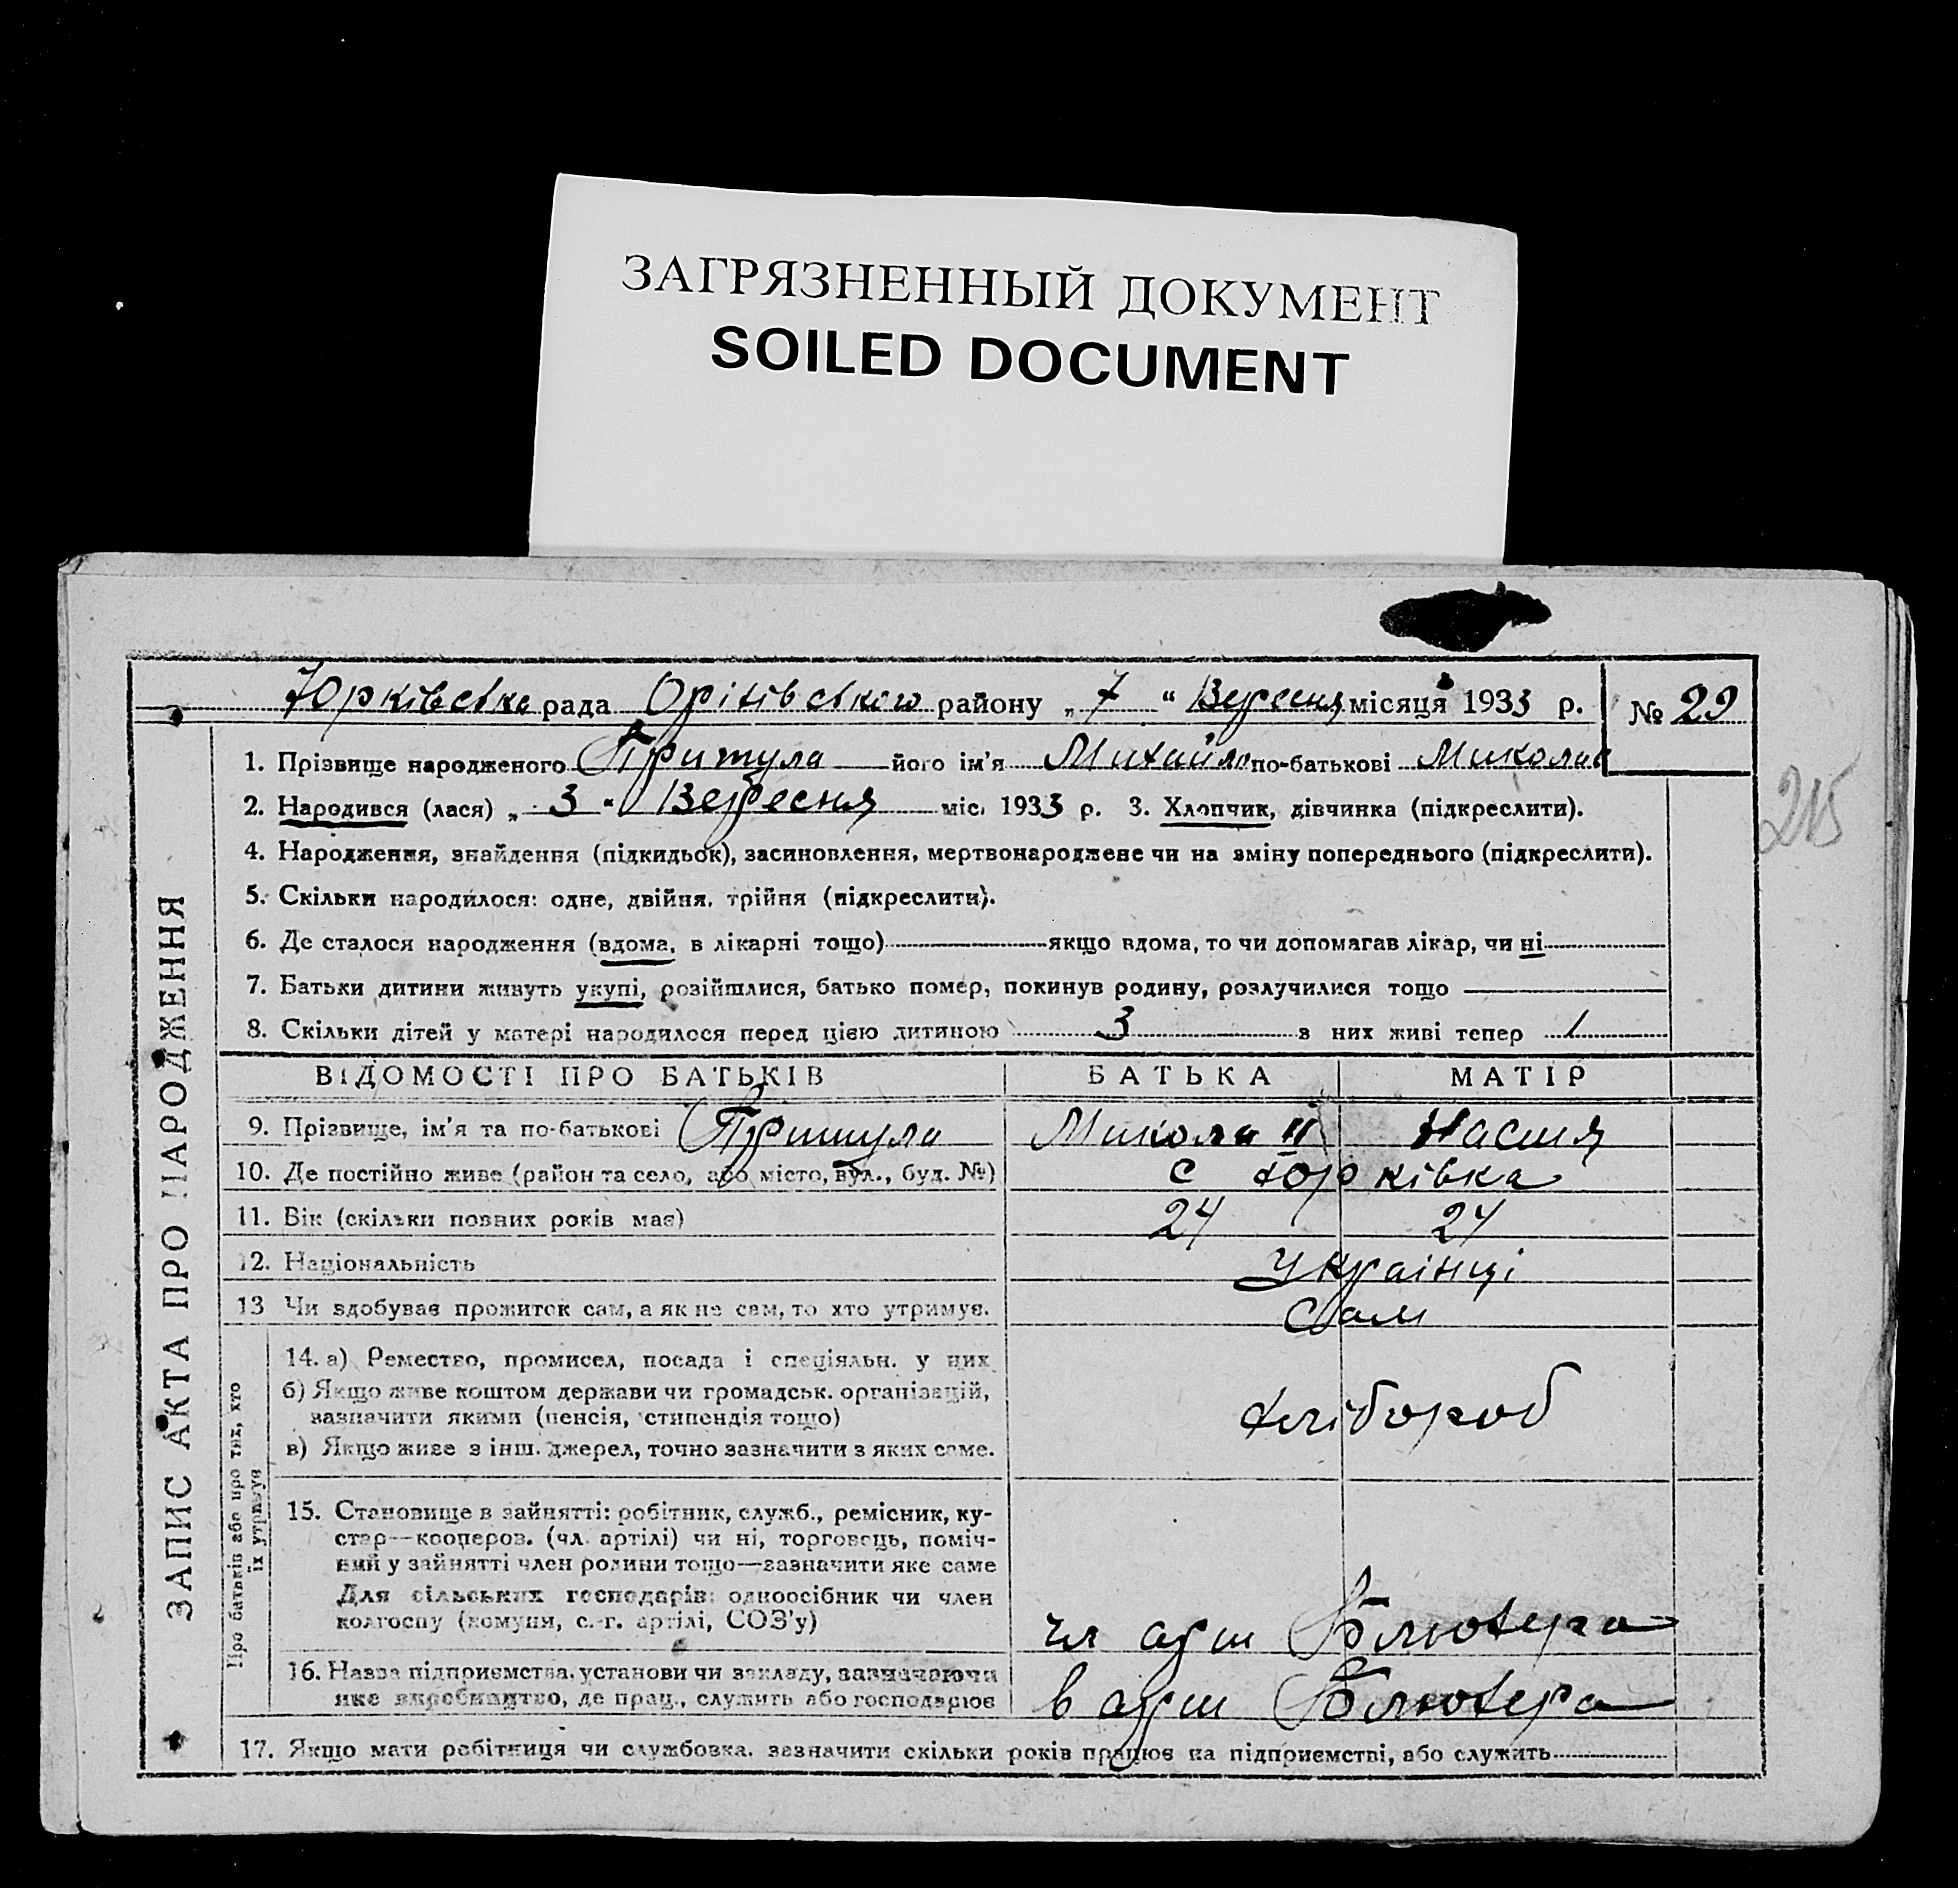 ЗАГРЯЗНЕННЫЙ ДОКУМЕНТ
SOILED DOCUMENT
Юрківська рада Оріхівського району „ 7 “ Вересня місяця 1933 р. № 29
1. Прізвище народженого Притула його ім'я Михайло по-батькові Миколаїв
2. Народився (лася) „ 3 “ Вересня міс. 1933 р. 3. Хлопчик, дівчинка (підкреслити).
215
4. Народження, знайдення (підкидьок), засиновлення, мертвонароджене чи на зміну попереднього (підкреслити).
5. Скільки народилося: одне, двійня, трійня (підкреслити).
6. Де сталося народження (вдома, в лікарні тощо) якщо вдома, то чи допомагав лікар, чи ні
7. Батьки дитини живуть укупі, розійшлися, батько помер, покинув родину, розлучилися тощо
8. Скільки дітей у матері народилося перед цією дитиною 3 з них живі тепер 1
ЗАПИС АКТА ПРО НАРОДЖЕННЯ
ВІДОМОСТІ ПРО БАТЬКІВ БАТЬКА МАТІР
9. Прізвище, ім'я та по-батькові Притула Микола и Настя
10. Де постійно живе (район та село, або місто, вул., буд. №) с Юрківка
11. Вік (скільки повних років має) 24 24
12. Національність Українці
13 Чи здобуває прожиток сам, а як не сам, то хто утримує. Сам
Про батьків або про тих, хто
їх утримує
14. а) Ремество, промисел, посада і спеціяльн. у них
б) Якщо живе коштом держави чи громадськ. організацій,
зазначити якими (пенсія, стипендія тощо)
хлібороб
в) Якщо живе з інш. джерел, точно зазначити з яких саме.
15. Становище в зайнятті: робітник, служб., ремісник, ку-
стар—кооперов. (чл. артілі) чи ні, торговець, поміч-
ний у зайнятті член родини тощо—зазначити яке саме
Для сільських господарів: одноосібник чи член
колгоспу (комуни, с.-г. артілі, СОЗ'у) чл арт Блюхера
16. Назва підприємства, установи чи закладу, зазначаючи
яке виробництво, де прац., служить або господарює в арт Блюхера
17. Якщо мати робітниця чи службовка, зазначити скільки років працює на підприємстві, або служить